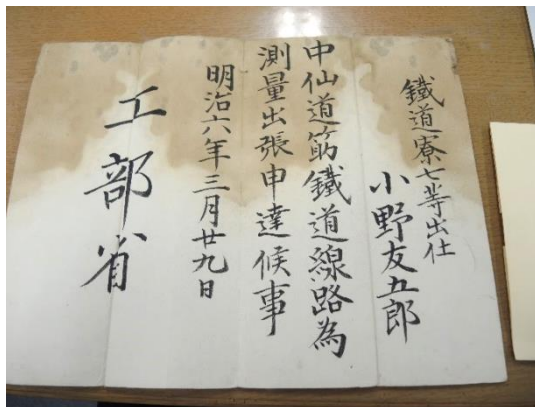 鐵道寮七等出仕
小野友五郎
中仙道筋鐵道線路為
測量出張申達候事
明治六年三月廿九日
工部省